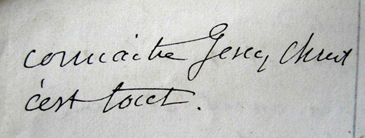 connaitre Jesus Christ
c'est tout.